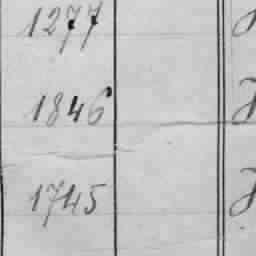 1277
1846
1745